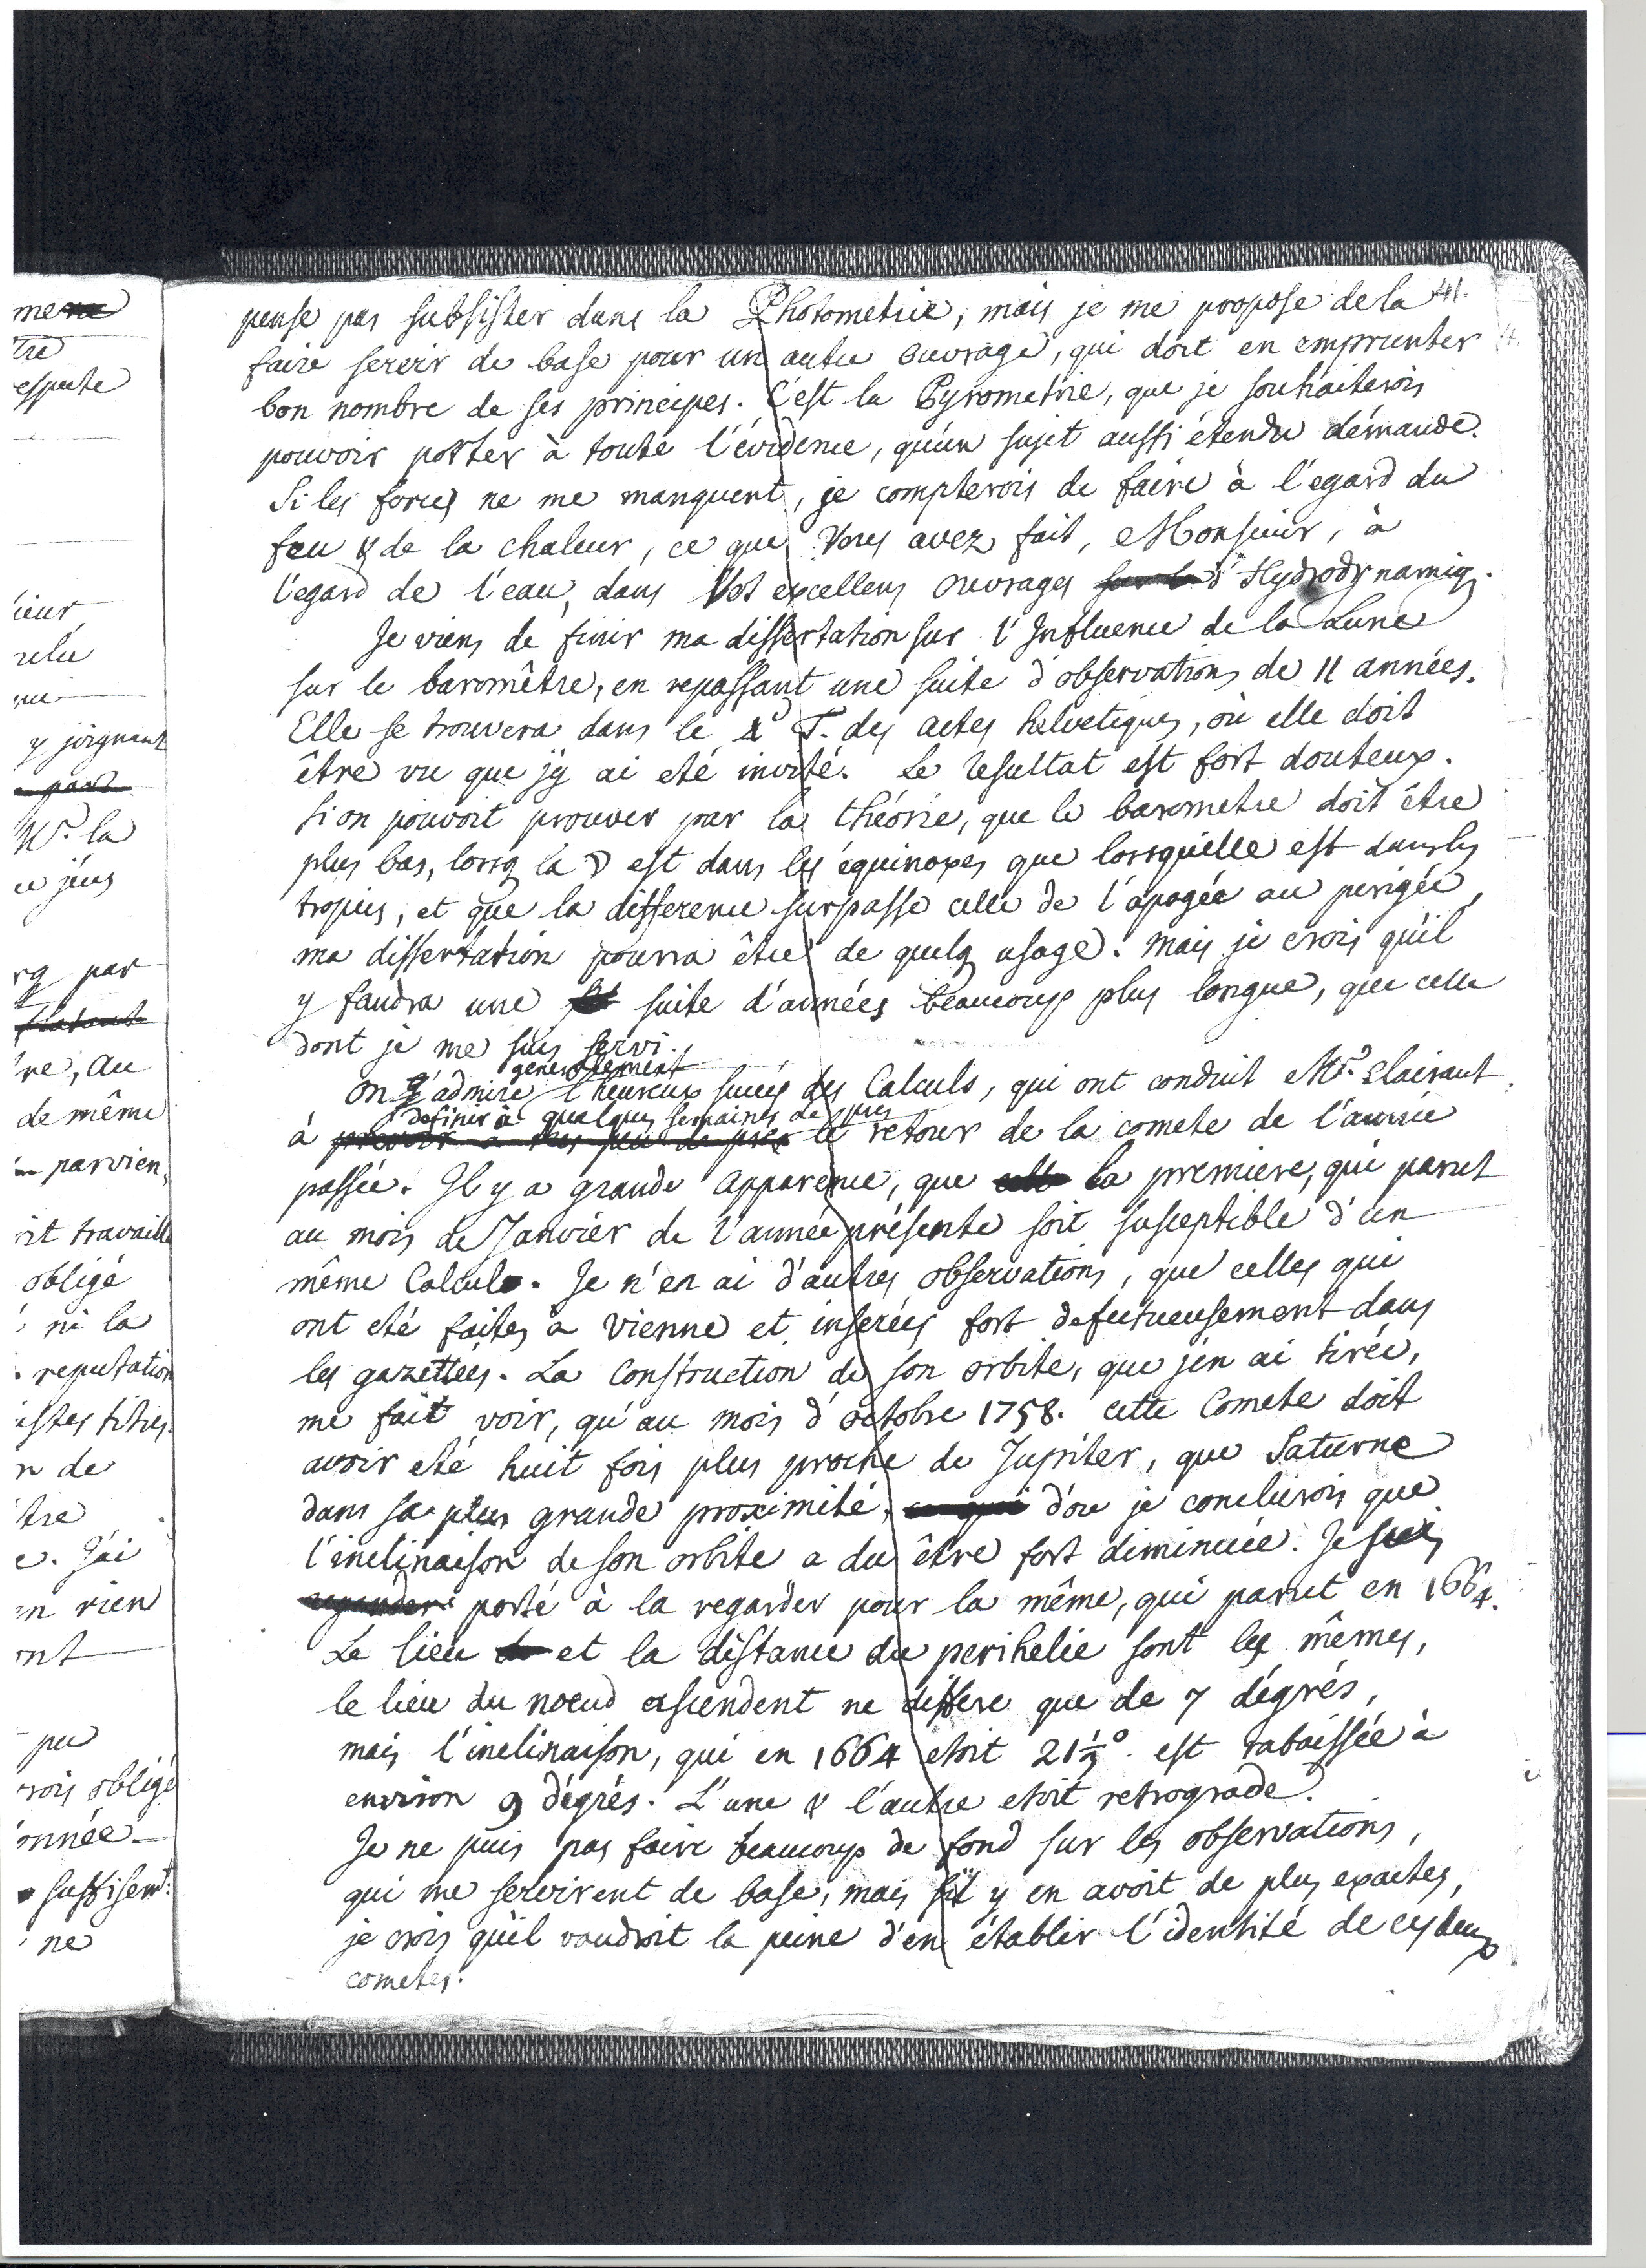 41.
pense pas subsister dans la Photometrie, mais je me propose de la
faire servir de base pour un autre ouvrage, qui doit en emprunter
bon nombre de ses principes. C'est la Pyrometrie, que je souhaiterois
pouvoir porter à toute l'évidence, qu'un sujet aussi étendu démande.
Si les forces ne me manquent, je compterois de faire à l'egard du
feu & de la chaleur, ce que Vous avez fait, Monsieur, à
l'egard de l'eau, dans Vos excellens ouvrages sur la d'Hydrodynamiq.
Je viens de finir ma dissertation sur l'Influence de la Lune
sur le baromêtre, en repassant une suite d'observations de 11 années.
Elle se trouvera dans le 4e T. des actes helvetiques, où elle doit
être vu que j'y ai eté invité. Le resultat est fort douteux.
Si on pouvoit prouver par la théorie, que le barometre doit être
plus bas, lorsq la ☽ est dans les équinoxes que lorsqu'elle est dans les
tropics, et que la difference surpasse celle de l'apogée au perigée,
ma dissertation pourra être de quelq usage. Mais je crois qu'il
y faudra une suite d'années beaucoup plus longue, que celle
dont je me suis servi.
generalement
On admire l'heureux succès des Calculs, qui ont conduit Mr. Clairaut
definir à quelques semaines de pres
à prevoir a tres peu de pres le retour de la comete de l'année
passée. Il y a grande apparence, que celle la premiere, qui parut
au mois de Janvier de l'année présente soit susceptible d'un
même Calcul. Je n'en ai d'autres observations, que celles qui
ont eté faites à Vienne et inserées fort defectueusement dans
les gazettees. La Construction de son orbite, que j'en ai tirée,
me fait voir, qu'au mois d'octobre 1758. cette Comete doit
avoir eté huit fois plus proche de Jupiter, que Saturne
dans sa plus grande proximité, ce qui d'ou je conclurois que
l'inclinaison de son orbite a du être fort diminuée. Je suis
regarder porté à la regarder pour la même, qui parut en 1664.
Le lieu et la distance du perihelie sont les mêmes,
le lieu du noeud ascendent ne differe que de 7 dégrés,
mais l'inclinaison, qui en 1664 etoit 21⅓° est rabaissée à
environ 9 dégrés. L'une & l'autre etoit retrograde.
Je ne puis pas faire beaucoup de fond sur les observations,
qui me servirent de base, mais s'il y en avoit de plus exactes,
je crois qu'il voudroit la peine d'en établir l'identité de ces deux
cometes.